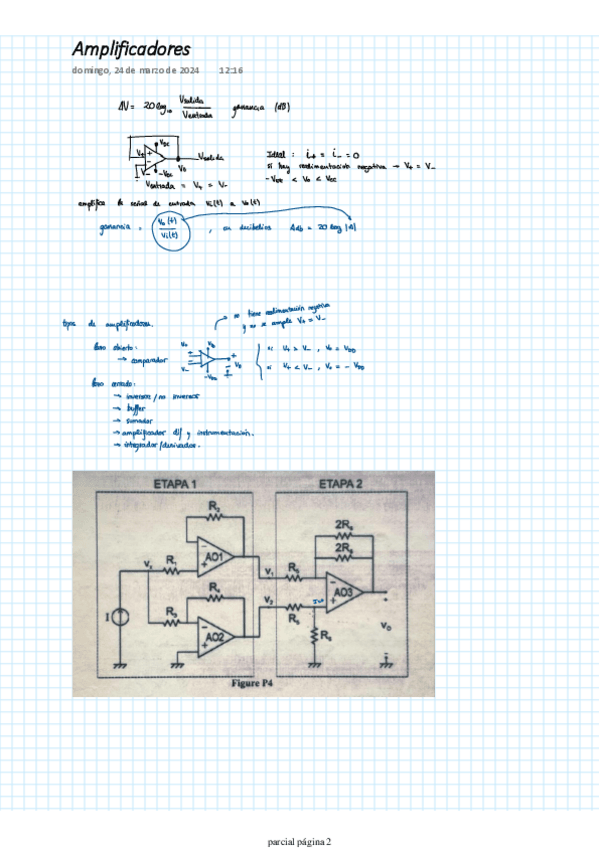 Amplificadores
domingo, 24 de marzo de 2024 12:16
ΔV = 20 log₁₀ Vsalida / Ventrada ganancia (dB)
Vcc
V+
Vsalida
V- -Vcc Vo
Ventrada = V+ = V-
Ideal : i+ = i- = 0
si hay realimentación negativa → V+ = V-
-Vcc < Vo < Vcc
amplifica la señal de entrada Vi(t) a Vo(t)
ganancia = Vo(t) / Vi(t) , en decibelios Adb = 20 log |A|
tipos de amplificadores.
→ no tiene realimentación negativa
y no se cumple V+ = V-
lazo abierto:
→ comparador
si V+ > V- , Vo = VDD
si V+ < V- , Vo = - VDD
lazo cerrado:
→ inversor / no inversor
→ buffer
→ sumador
→ amplificador dif y instrumentación.
→ integrador/derivador.
ETAPA 1 ETAPA 2
AO1
AO2
AO3
2R₆
2R₆
I
Figure P4
parcial página 2